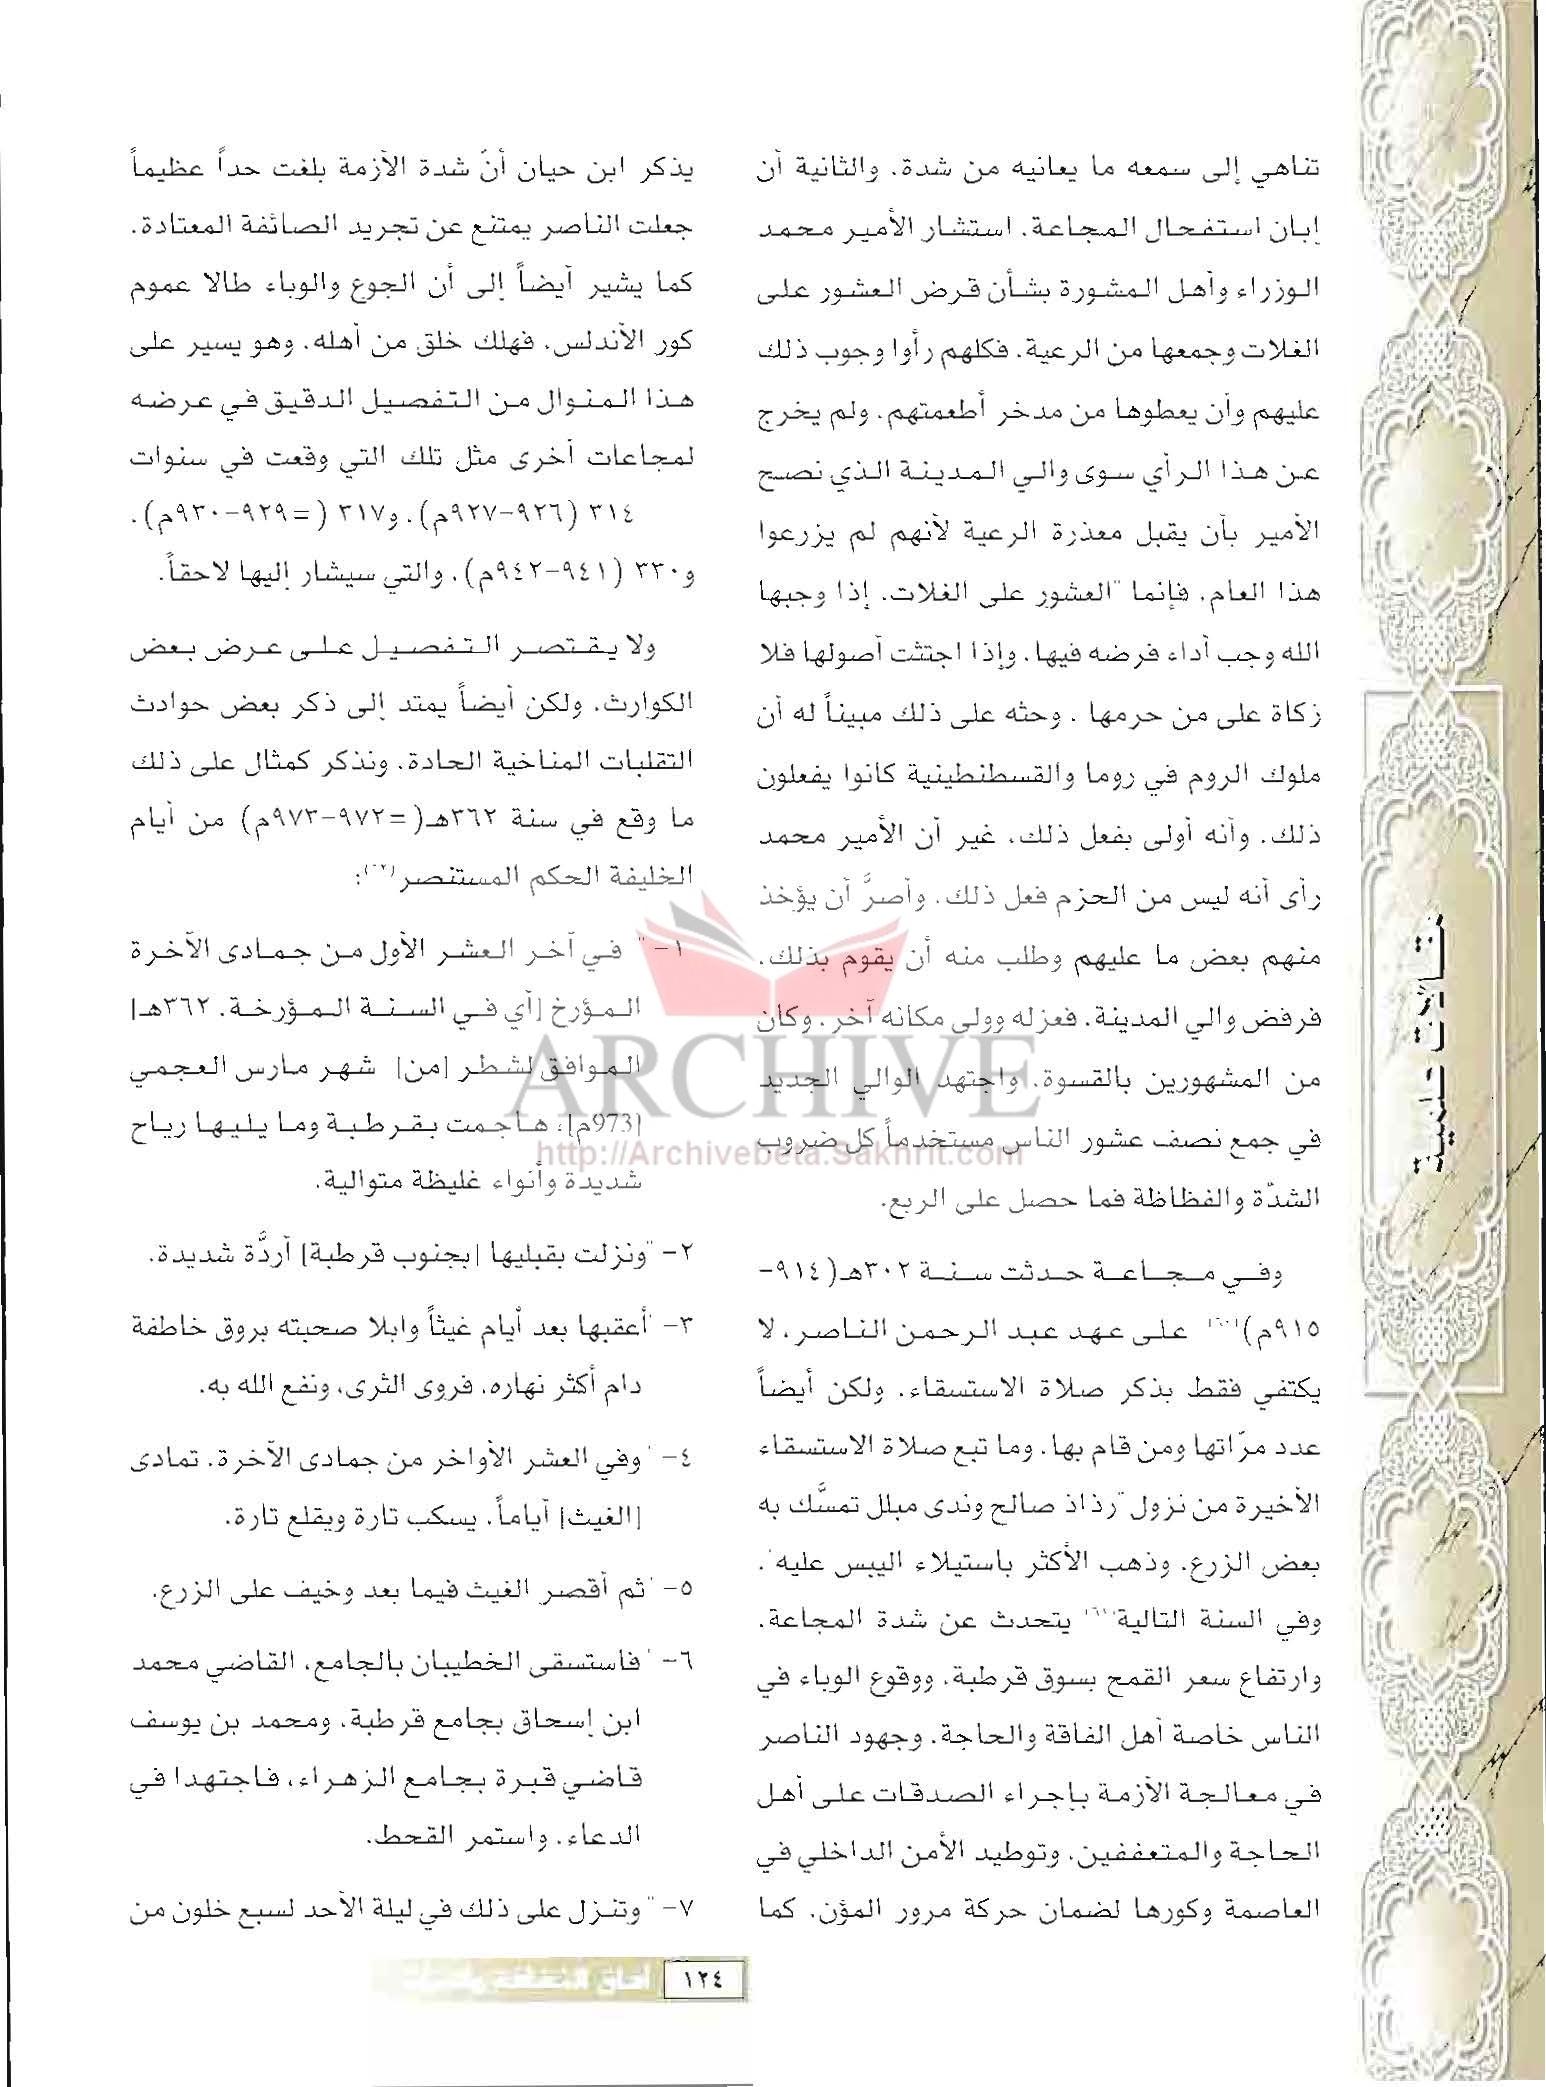 تناهي إلى سمعه ما يعانيه من شدة. والثانية أن
إبان استفحال المجاعة. استشار الأمير محمد
الوزراء وأهل المشورة بشأن قرض العشور على
الغلات وجمعها من الرعية. فكلهم رأوا وجوب ذلك
عليهم وأن يعطوها من مدخر أطعمتهم. ولم يخرج
عن هذا الرأي سوى والي المدينة الذي نصح
الأمير بأن يقبل معذرة الرعية لأنهم لم يزرعوا
هذا العام. فإنما "العشور على الغلات. إذا وجبها
الله وجب أداء فرضه فيها. وإذا اجتثت أصولها فلا
زكاة على من حرمها . وحثه على ذلك مبيناً له أن
ملوك الروم في روما والقسطنطينية كانوا يفعلون
ذلك. وأنه أولى بفعل ذلك، غير أن الأمير محمد
رأى أنه ليس من الحزم فعل ذلك. وأصرَّ أن يؤخذ
منهم بعض ما عليهم وطلب منه أن يقوم بذلك.
فرفض والي المدينة. فعزله وولى مكانه آخر. وكان
من المشهورين بالقسوة. واجتهد الوالي الجديد
في جمع نصف عشور الناس مستخدماً كل ضروب
الشدّة والفظاظة فما حصل على الربع.
وفي مجاعة حدثت سنة ٣٠٢هـ(٩١٤-
٩١٥م) على عهد عبد الرحمن الناصر. لا
يكتفي فقط بذكر صلاة الاستسقاء. ولكن أيضاً
عدد مرّاتها ومن قام بها. وما تبع صلاة الاستسقاء
الأخيرة من نزول "رذاذ صالح وندى مبلل تمسَّك به
بعض الزرع. وذهب الأكثر باستيلاء اليبس عليه".
وفي السنة التالية يتحدث عن شدة المجاعة.
وارتفاع سعر القمح بسوق قرطبة. ووقوع الوباء في
الناس خاصة أهل الفاقة والحاجة. وجهود الناصر
في معالجة الأزمة بإجراء الصدقات على أهل
الحاجة والمتعففين. وتوطيد الأمن الداخلي في
العاصمة وكورها لضمان حركة مرور المؤن. كما
يذكر ابن حيان أنّ شدة الأزمة بلغت حداً عظيماً
جعلت الناصر يمتنع عن تجريد الصائفة المعتادة.
كما يشير أيضاً إلى أن الجوع والوباء طالا عموم
كور الأندلس. فهلك خلق من أهله. وهو يسير على
هذا المنوال من التفصيل الدقيق في عرضه
لمجاعات أخرى مثل تلك التي وقعت في سنوات
٣١٤ (٩٢٦-٩٢٧م). و٣١٧ (=٩٢٩-٩٣٠م).
و٣٣٠ (٩٤١-٩٤٢م). والتي سيشار إليها لاحقاً.
ولا يقتصر التفصيل على عرض بعض
الكوارث. ولكن أيضاً يمتد إلى ذكر بعض حوادث
التقلبات المناخية الحادة. ونذكر كمثال على ذلك
ما وقع في سنة ٣٦٢هـ(=٩٧٢-٩٧٣م) من أيام
الخليفة الحكم المستنصر:
١- " في آخر العشر الأول من جمادى الآخرة
المؤرخ [أي في السنة المؤرخة. ٣٦٢هـ]
الموافق لشطر [من] شهر مارس العجمي
[973م]، هاجمت بقرطبة وما يليها رياح
شديدة وأنواء غليظة متوالية.
٢- "ونزلت بقبليها [بجنوب قرطبة] أردَّة شديدة.
٣- "أعقبها بعد أيام غيثاً وابلا صحبته بروق خاطفة
دام أكثر نهاره. فروى الثرى، ونفع الله به.
٤- "وفي العشر الأواخر من جمادى الآخرة. تمادى
[الغيث] أياماً. يسكب تارة ويقلع تارة.
٥- "ثم أقصر الغيث فيما بعد وخيف على الزرع.
٦- "فاستسقى الخطيبان بالجامع، القاضي محمد
ابن إسحاق بجامع قرطبة. ومحمد بن يوسف
قاضي قبرة بجامع الزهراء، فاجتهدا في
الدعاء. واستمر القحط.
٧- " وتنزل على ذلك في ليلة الأحد لسبع خلون من
ARCHIVE
http://Archivebeta.Sakhrit.com
١٢٤